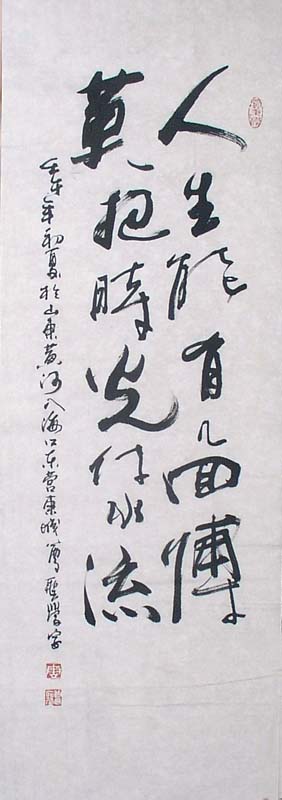 人生能有几回搏
莫把時光付水流
壬午年初夏於山東黄河入海口东营東城